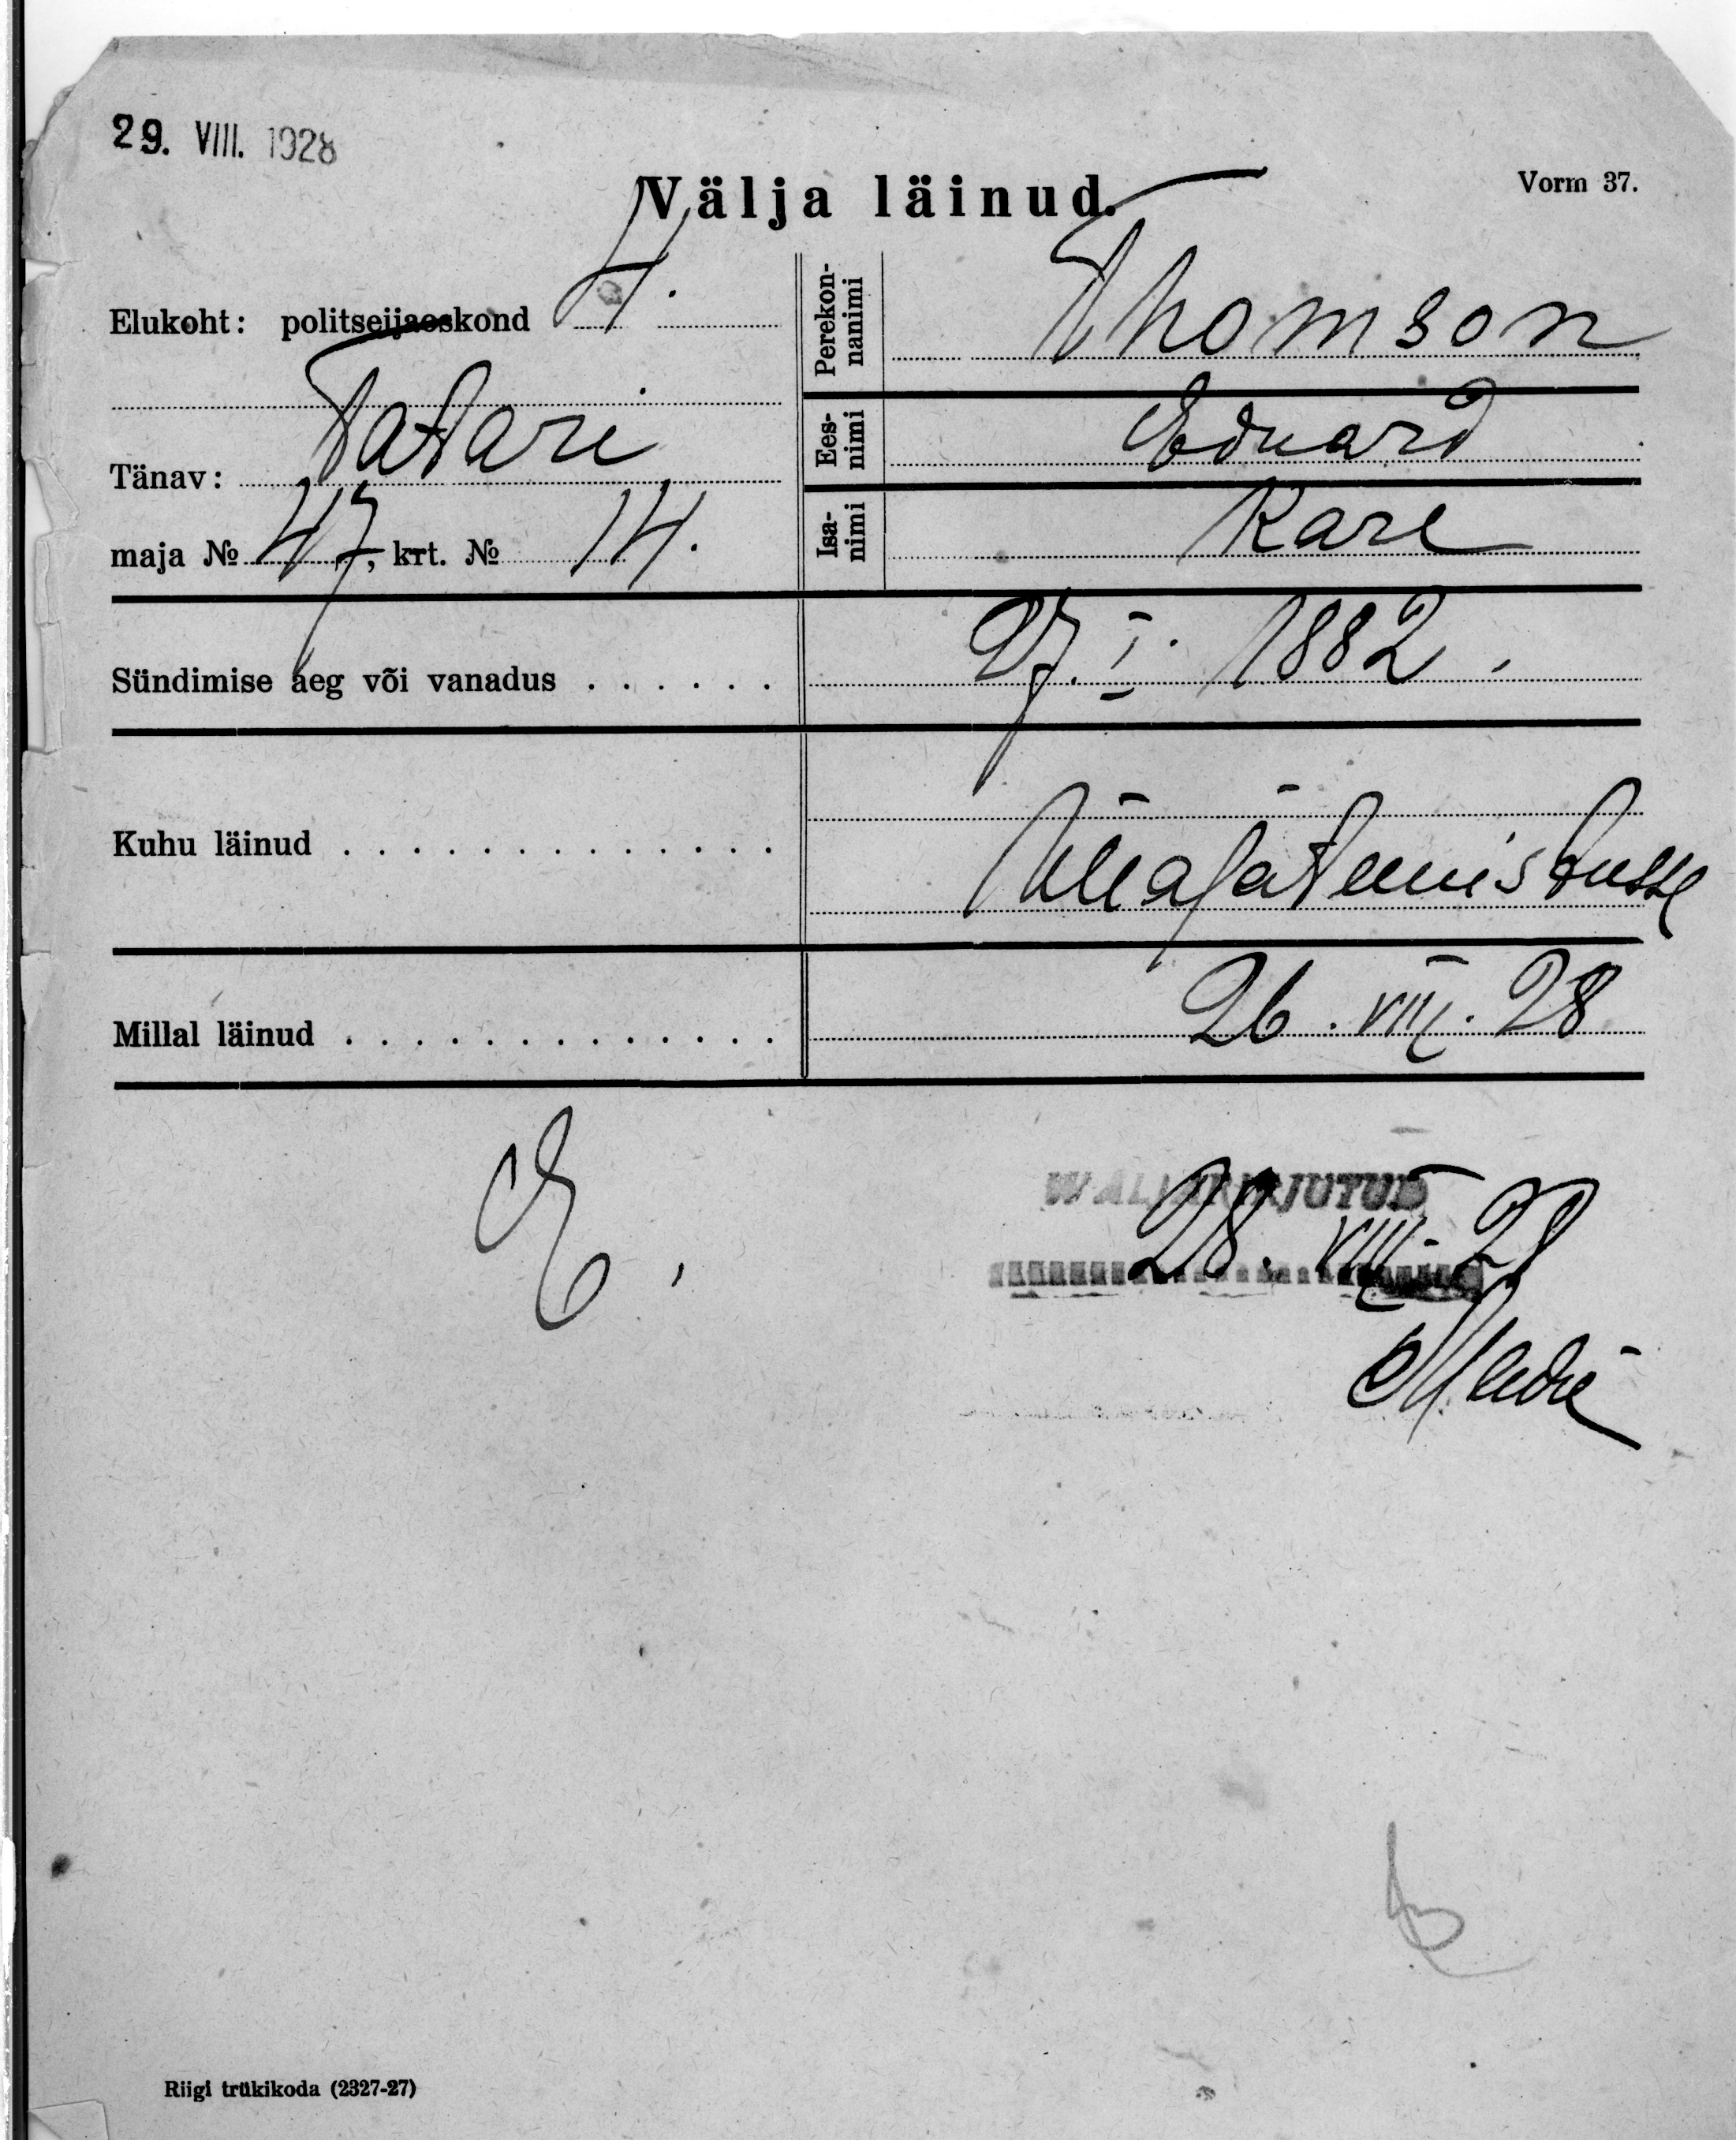 29. VIII. 1928
Vorm 37.
Välja läinud.
Elukoht: politseijaoskond 4.
Tänav: Tatari
maja № 47, krt. № 14.
Perekonnanimi Thomson
Eesnimi Eduard
Isanimi Karl
Sündimise aeg või vanadus . . . . . . 27. I. 1882.
Kuhu läinud . . . . . . . . . . . . . Ülejatemiskusse
Millal läinud . . . . . . . . . . . . . 26. VIII. 28
E.
WÄLJAKIRJUTUD
28. VIII. 28
Riigi trükikoda (2327-27)